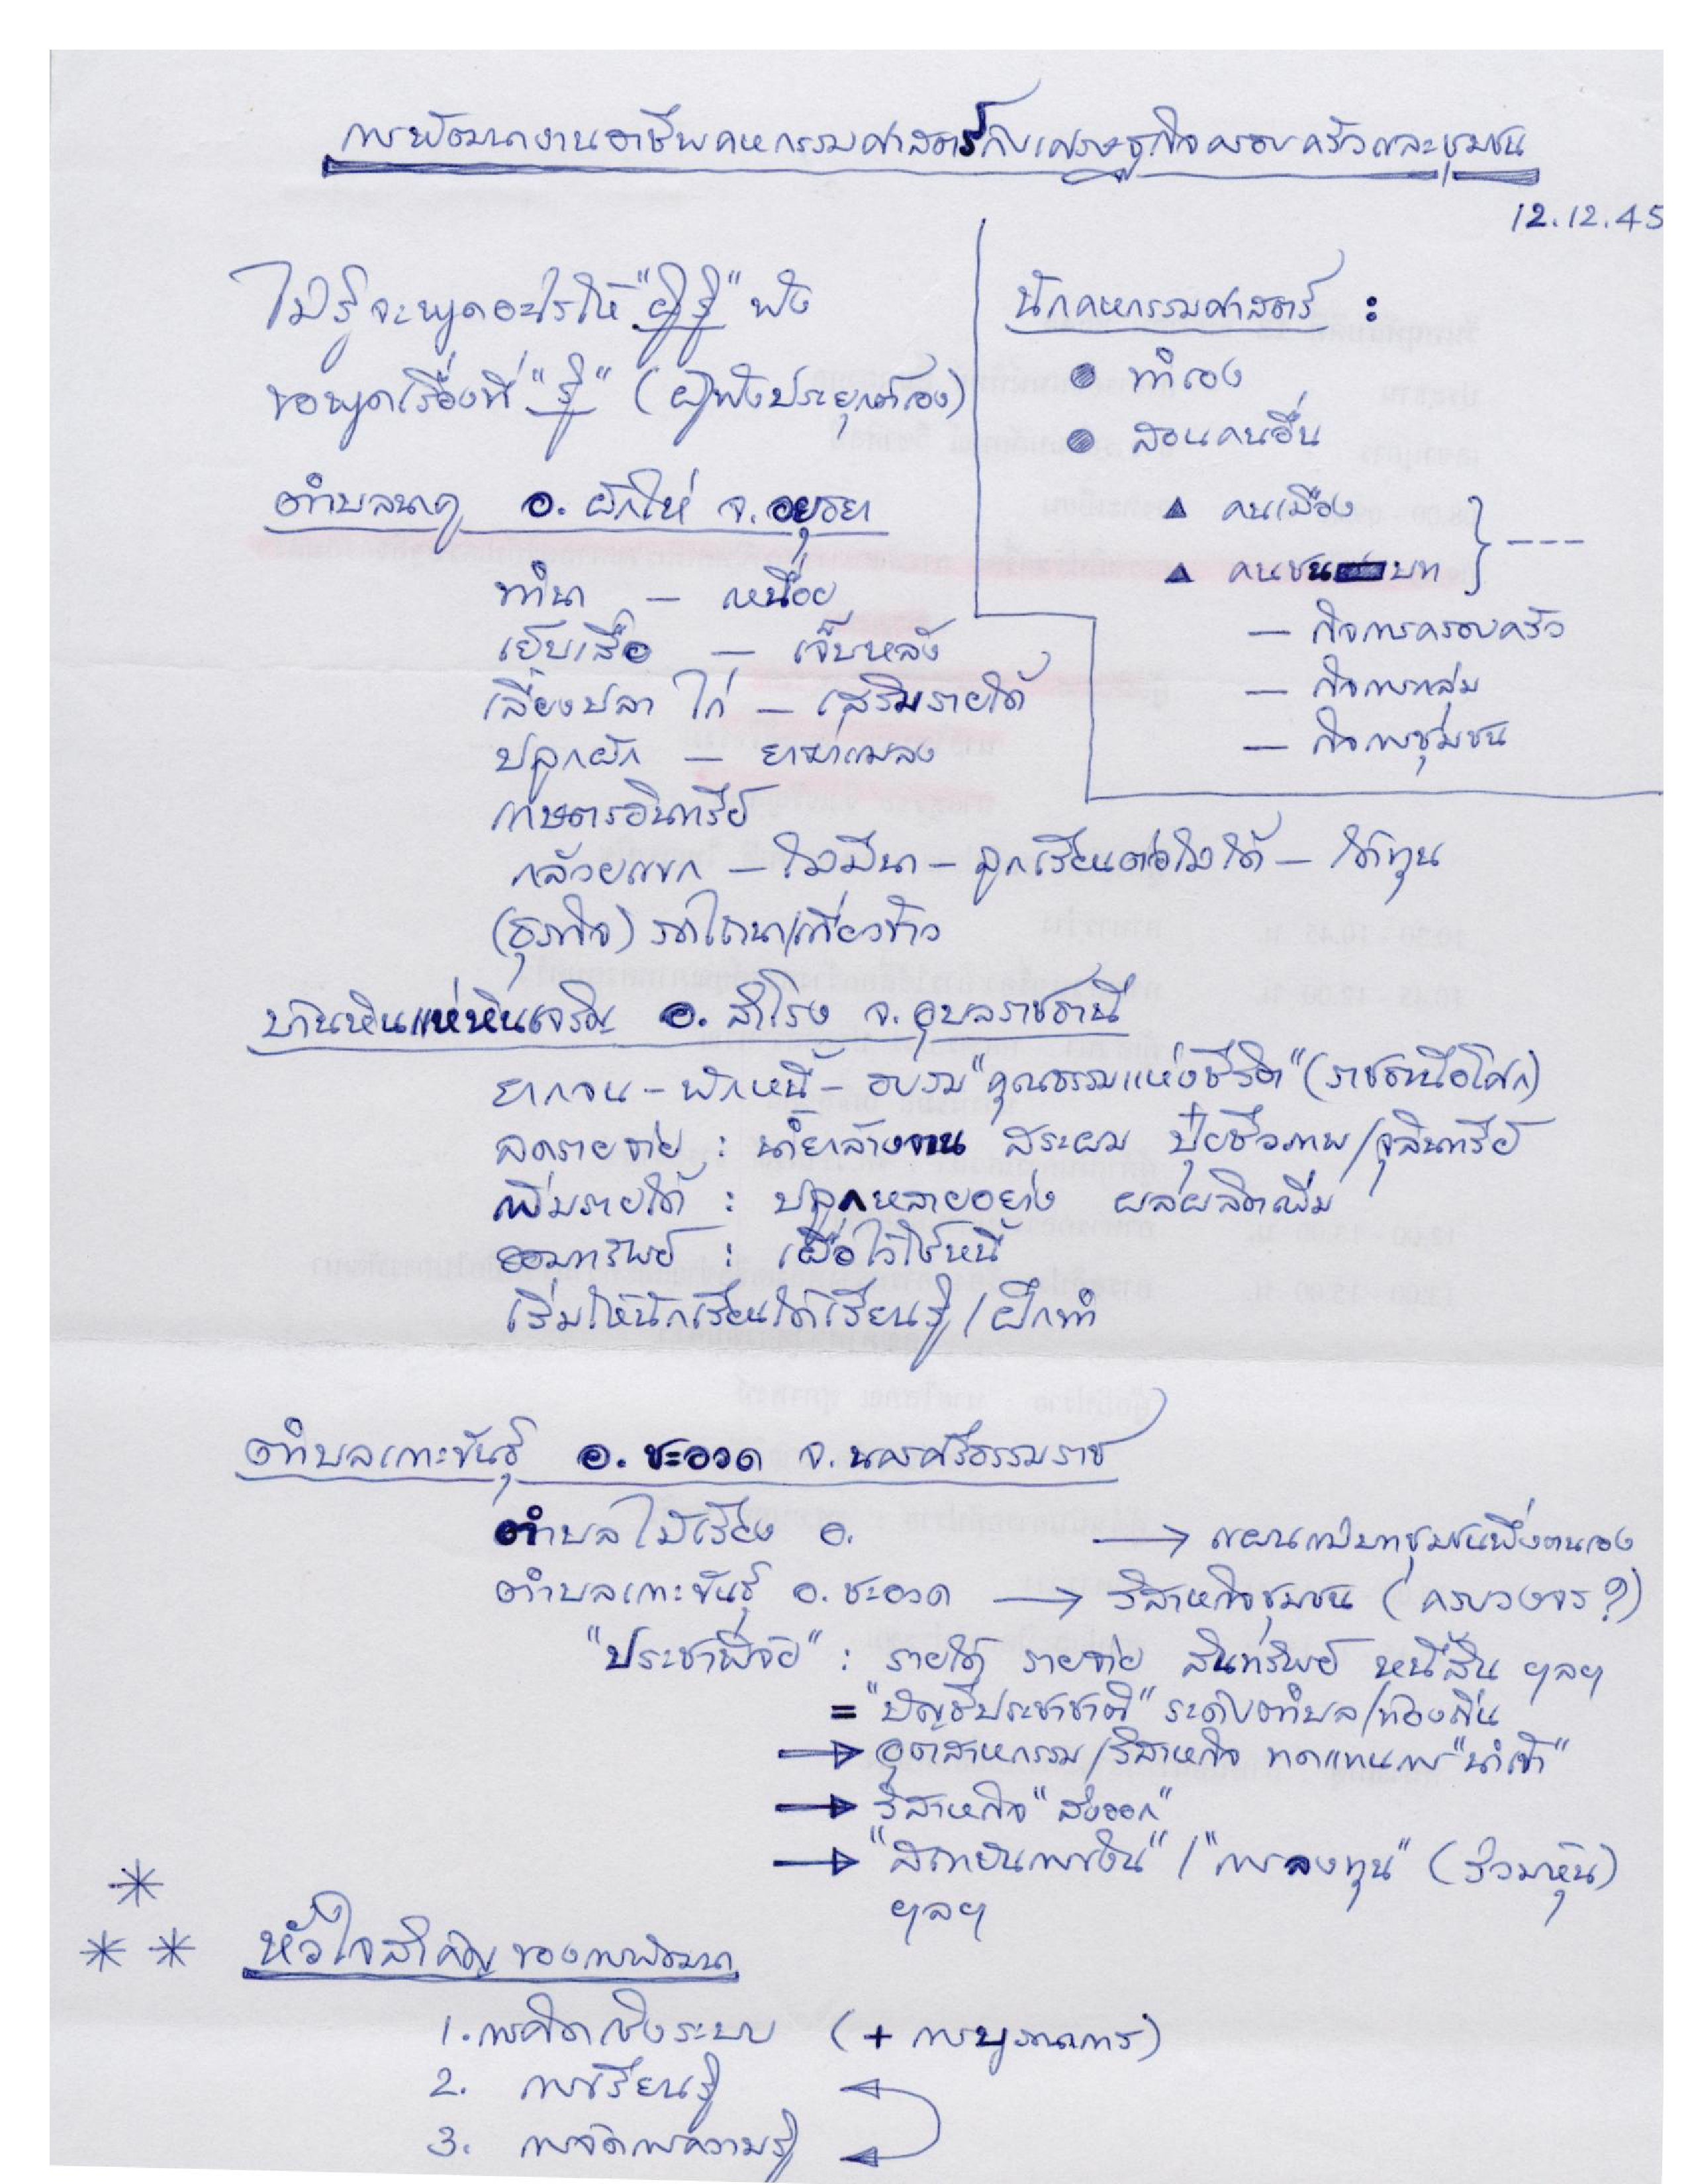 การพัฒนางานอาชีพคหกรรมศาสตร์กับเศรษฐกิจครอบครัวและชุมชน
12.12.45
ไม่รู้จะพูดอะไรให้ "ผู้รู้" ฟัง
ขอพูดเรื่องที่ "รู้" (ผู้ฟังประยุกต์เอง)
นักคหกรรมศาสตร์ :
● ทำเอง
● สอนคนอื่น
▲ คนเมือง
▲ คนชนบท } ---
— กิจการครอบครัว
— กิจการกลุ่ม
— กิจการชุมชน
ตำบลนาคู อ. ผักไห่ จ. อยุธยา
ทำนา — เหนื่อย
เย็บเสื้อ — เจ็บหลัง
เลี้ยงปลา ไก่ — เสริมรายได้
ปลูกผัก — ยาฆ่าแมลง
เกษตรอินทรีย์
กล้วยแขก — ไม่มีนา — ลูกเรียนต่อไม่ได้ — ได้ทุน
(ธุรกิจ) รถไถนา/เกี่ยวข้าว
บ้านหินแห่หินเจริญ อ. สำโรง จ. อุบลราชธานี
ยากจน – พักหนี้ – อบรม "คุณธรรมแห่งชีวิต" (ราชธานีอโศก)
ลดรายจ่าย : น้ำยาล้างจาน สระผม ปุ๋ยชีวภาพ/จุลินทรีย์
เพิ่มรายได้ : ปลูกหลายอย่าง ผลผลิตเพิ่ม
ออมทรัพย์ : เผื่อไว้ใช้หนี้
เริ่มให้นักเรียนได้เรียนรู้/ฝึกทำ
ตำบลเกาะขันธ์ อ. ชะอวด จ. นครศรีธรรมราช
ตำบลไม้เรียง อ. → แผนแม่บทชุมชนพึ่งตนเอง
ตำบลเกาะขันธ์ อ. ชะอวด → วิสาหกิจชุมชน (ครบวงจร?)
"ประชาพิจัย" : รายได้ รายจ่าย สินทรัพย์ หนี้สิน ฯลฯ
= "บัญชีประชาชาติ" ระดับตำบล/ท้องถิ่น
→ อุตสาหกรรม/วิสาหกิจ ทดแทนการ "นำเข้า"
→ วิสาหกิจ "ส่งออก"
→ "สถาบันการเงิน" / "การลงทุน" (ร่วมหุ้น)
ฯลฯ
* * * หัวใจสำคัญของการพัฒนา
1. การคิดเชิงระบบ (+ การบูรณาการ)
2. การเรียนรู้
3. การจัดการความรู้